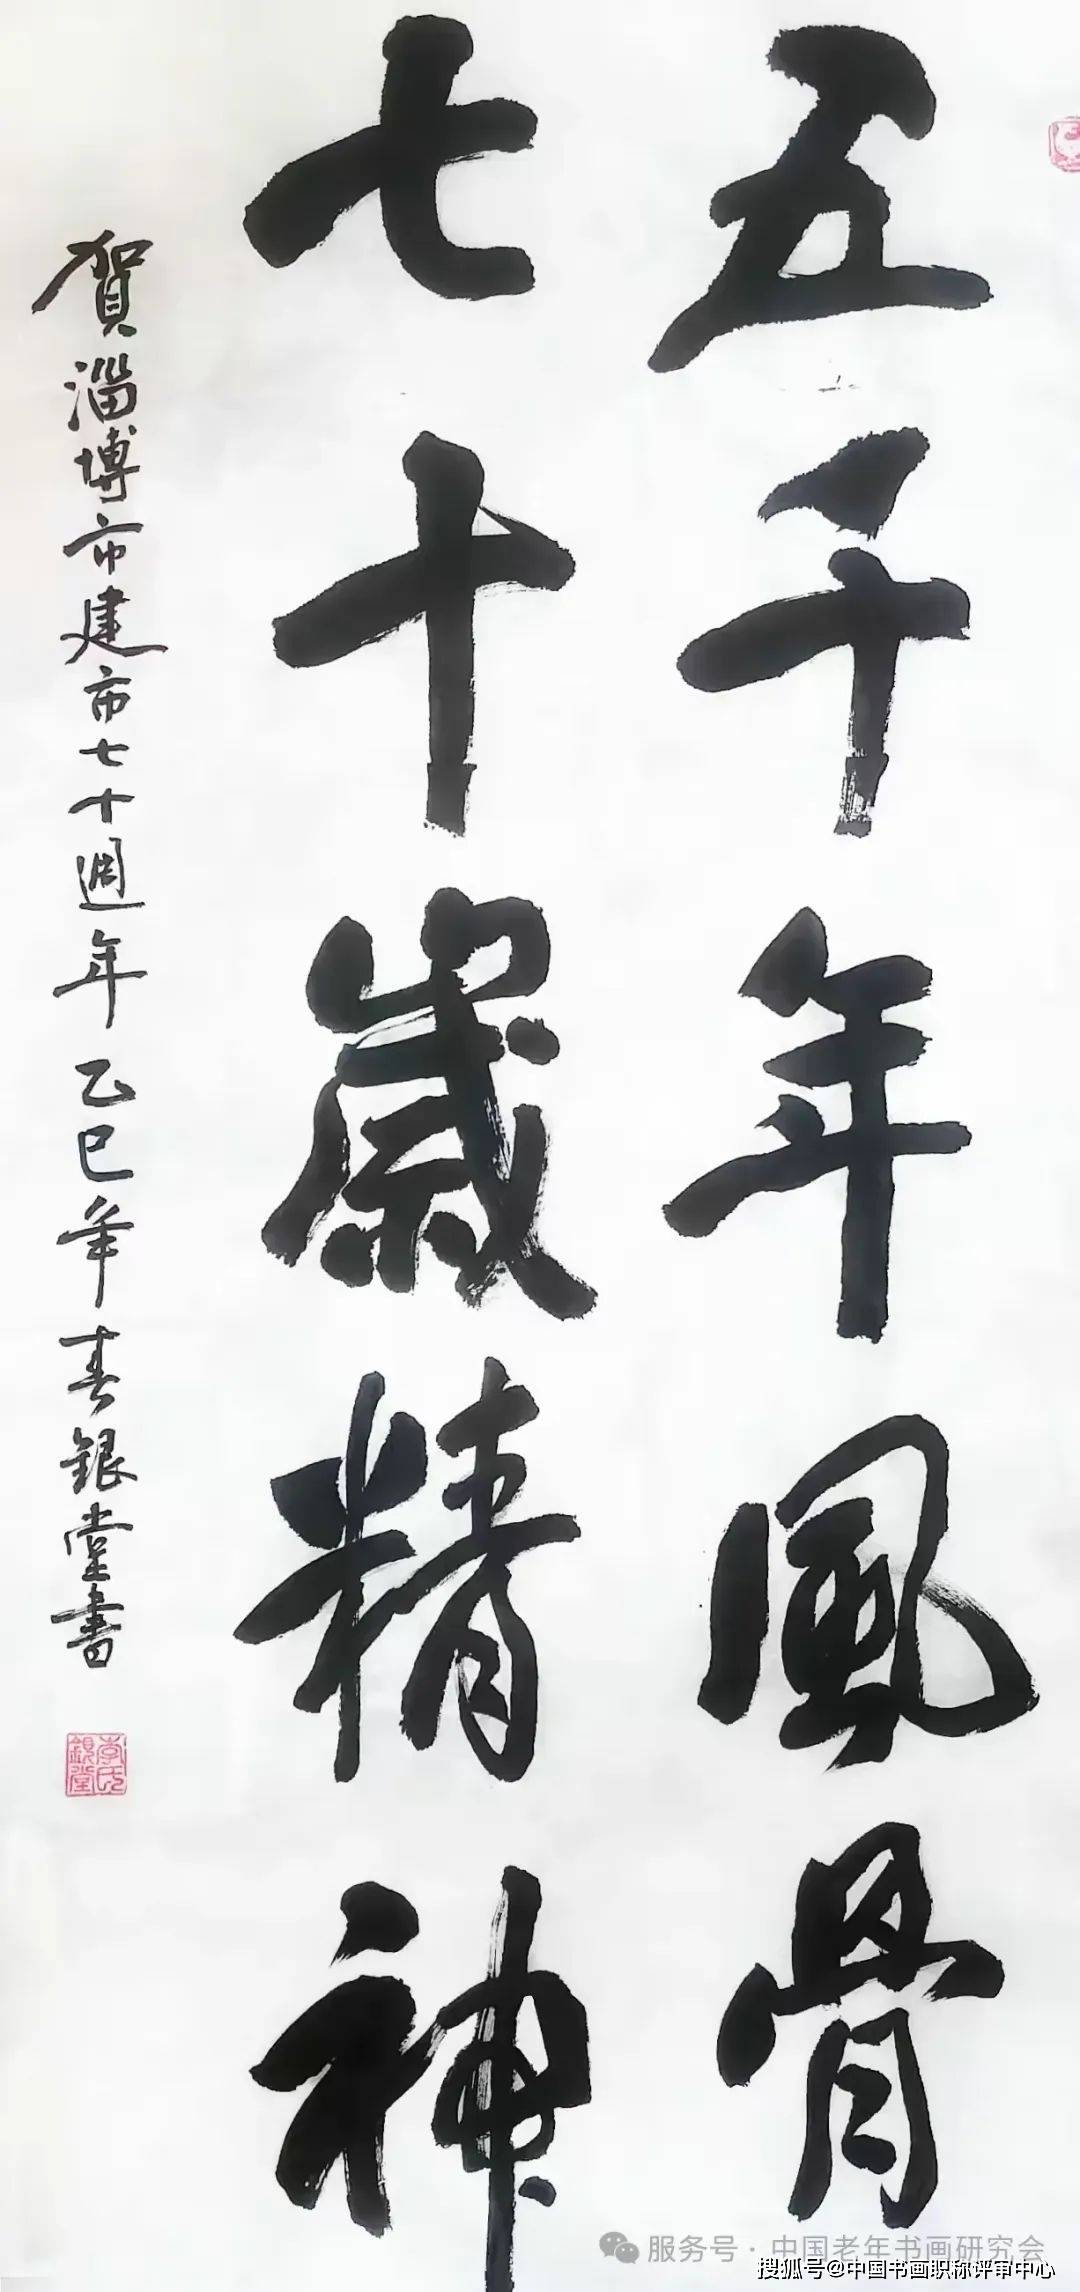 五千年風骨
七十歲精神
賀淄博市建市七十週年 乙巳年春銀堂書
李氏銀堂
服务号·中国老年书画研究会
搜狐号@中国书画职称评审中心